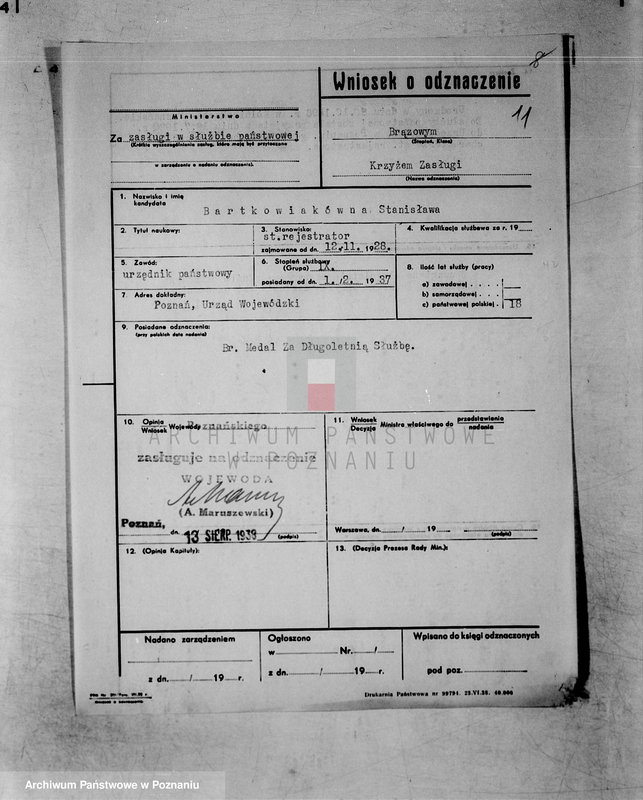 8
Wniosek o odznaczenie
11
Ministerstwo
Za zasługi w służbie państwowej
(Krótkie wyszczególnienie zasług, które mają być przytoczone
w zarządzeniu o nadaniu odznaczenia).
Brązowym
(Stopień, Klasa)
Krzyżem Zasługi
(Nazwa odznaczenia)
1. Nazwisko i imię
kandydata
Bartkowiakówna Stanisława
2. Tytuł naukowy:
3. Stanowisko:
st.rejestrator
zajmowane od dn. 12.11. 1928.
4. Kwalifikacja służbowa za r. 19
5. Zawód:
urzędnik państwowy
6. Stopień służbowy
(Grupa) IX.
posiadany od dn. 1. /2. 1937
7. Adres dokładny:
Poznań, Urząd Wojewódzki
8. Ilość lat służby (pracy)
a) zawodowej
b) samorządowej
c) państwowej polskiej 18
9. Posiadane odznaczenia:
(przy polskich data nadania)
Br. Medal Za Długoletnią Służbę.
10. Opinia
Wniosek
Wojewody Poznańskiego
zasługuje na odznaczenie
WOJEWODA
(A. Maruszewski)
Poznań, dn. 13 SIERP. 1939
(podpis)
11. Wniosek
Decyzja
Ministra właściwego do przedstawienia
nadania
Warszawa, dn. / 19
(podpis)
ARCHIWUM PAŃSTWOWE
W POZNANIU
12. (Opinia Kapituły):
13. (Decyzja Prezesa Rady Min.):
Nadano zarządzeniem
z dn. / 19 r.
Ogłoszono
w Nr. /
z dn. / 19 r.
Wpisano do księgi odznaczonych
pod poz.
Drukarnia Państwowa nr 99791. 23.VI.38. 40.000
Archiwum Państwowe w Poznaniu